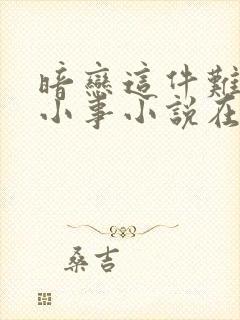 暗戀這件難
小事小說在
桑吉